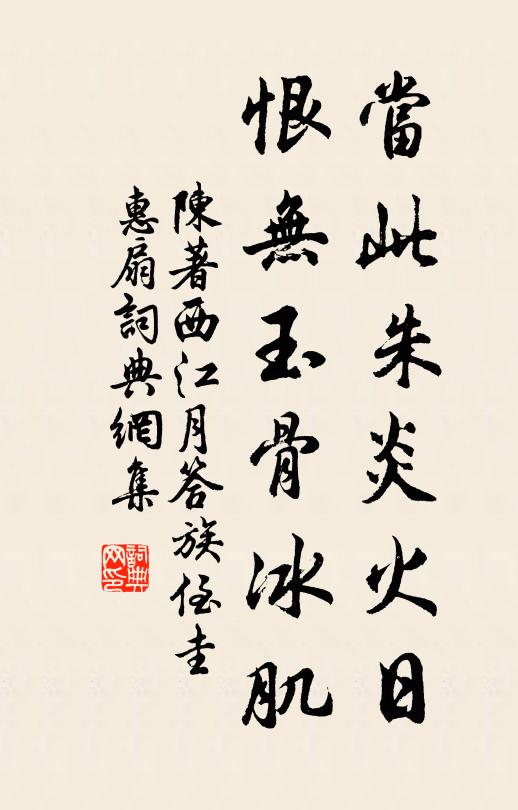 當此朱炎火日
恨無玉骨冰肌
陳著西江月答族侄圭
惠扇詞典網集
詞典網印